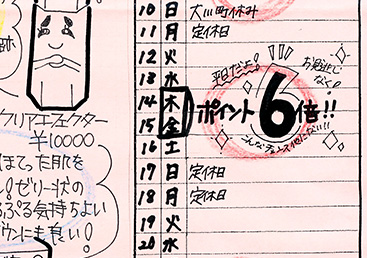 跡
クリアエフェクター
¥10000
ほてった肌を
ゼリー状の
ぷる気持ちよい
ウンにも良い!
10 日 大川町休み
11 月 定休日
12 火
13 水
14 木
15 金
平日だよ!
お見逃しなく!
ポイント6倍!!
こんなチャンス他にない!!
16 土
17 日 定休日
18 月 定休日
19 火
20 水